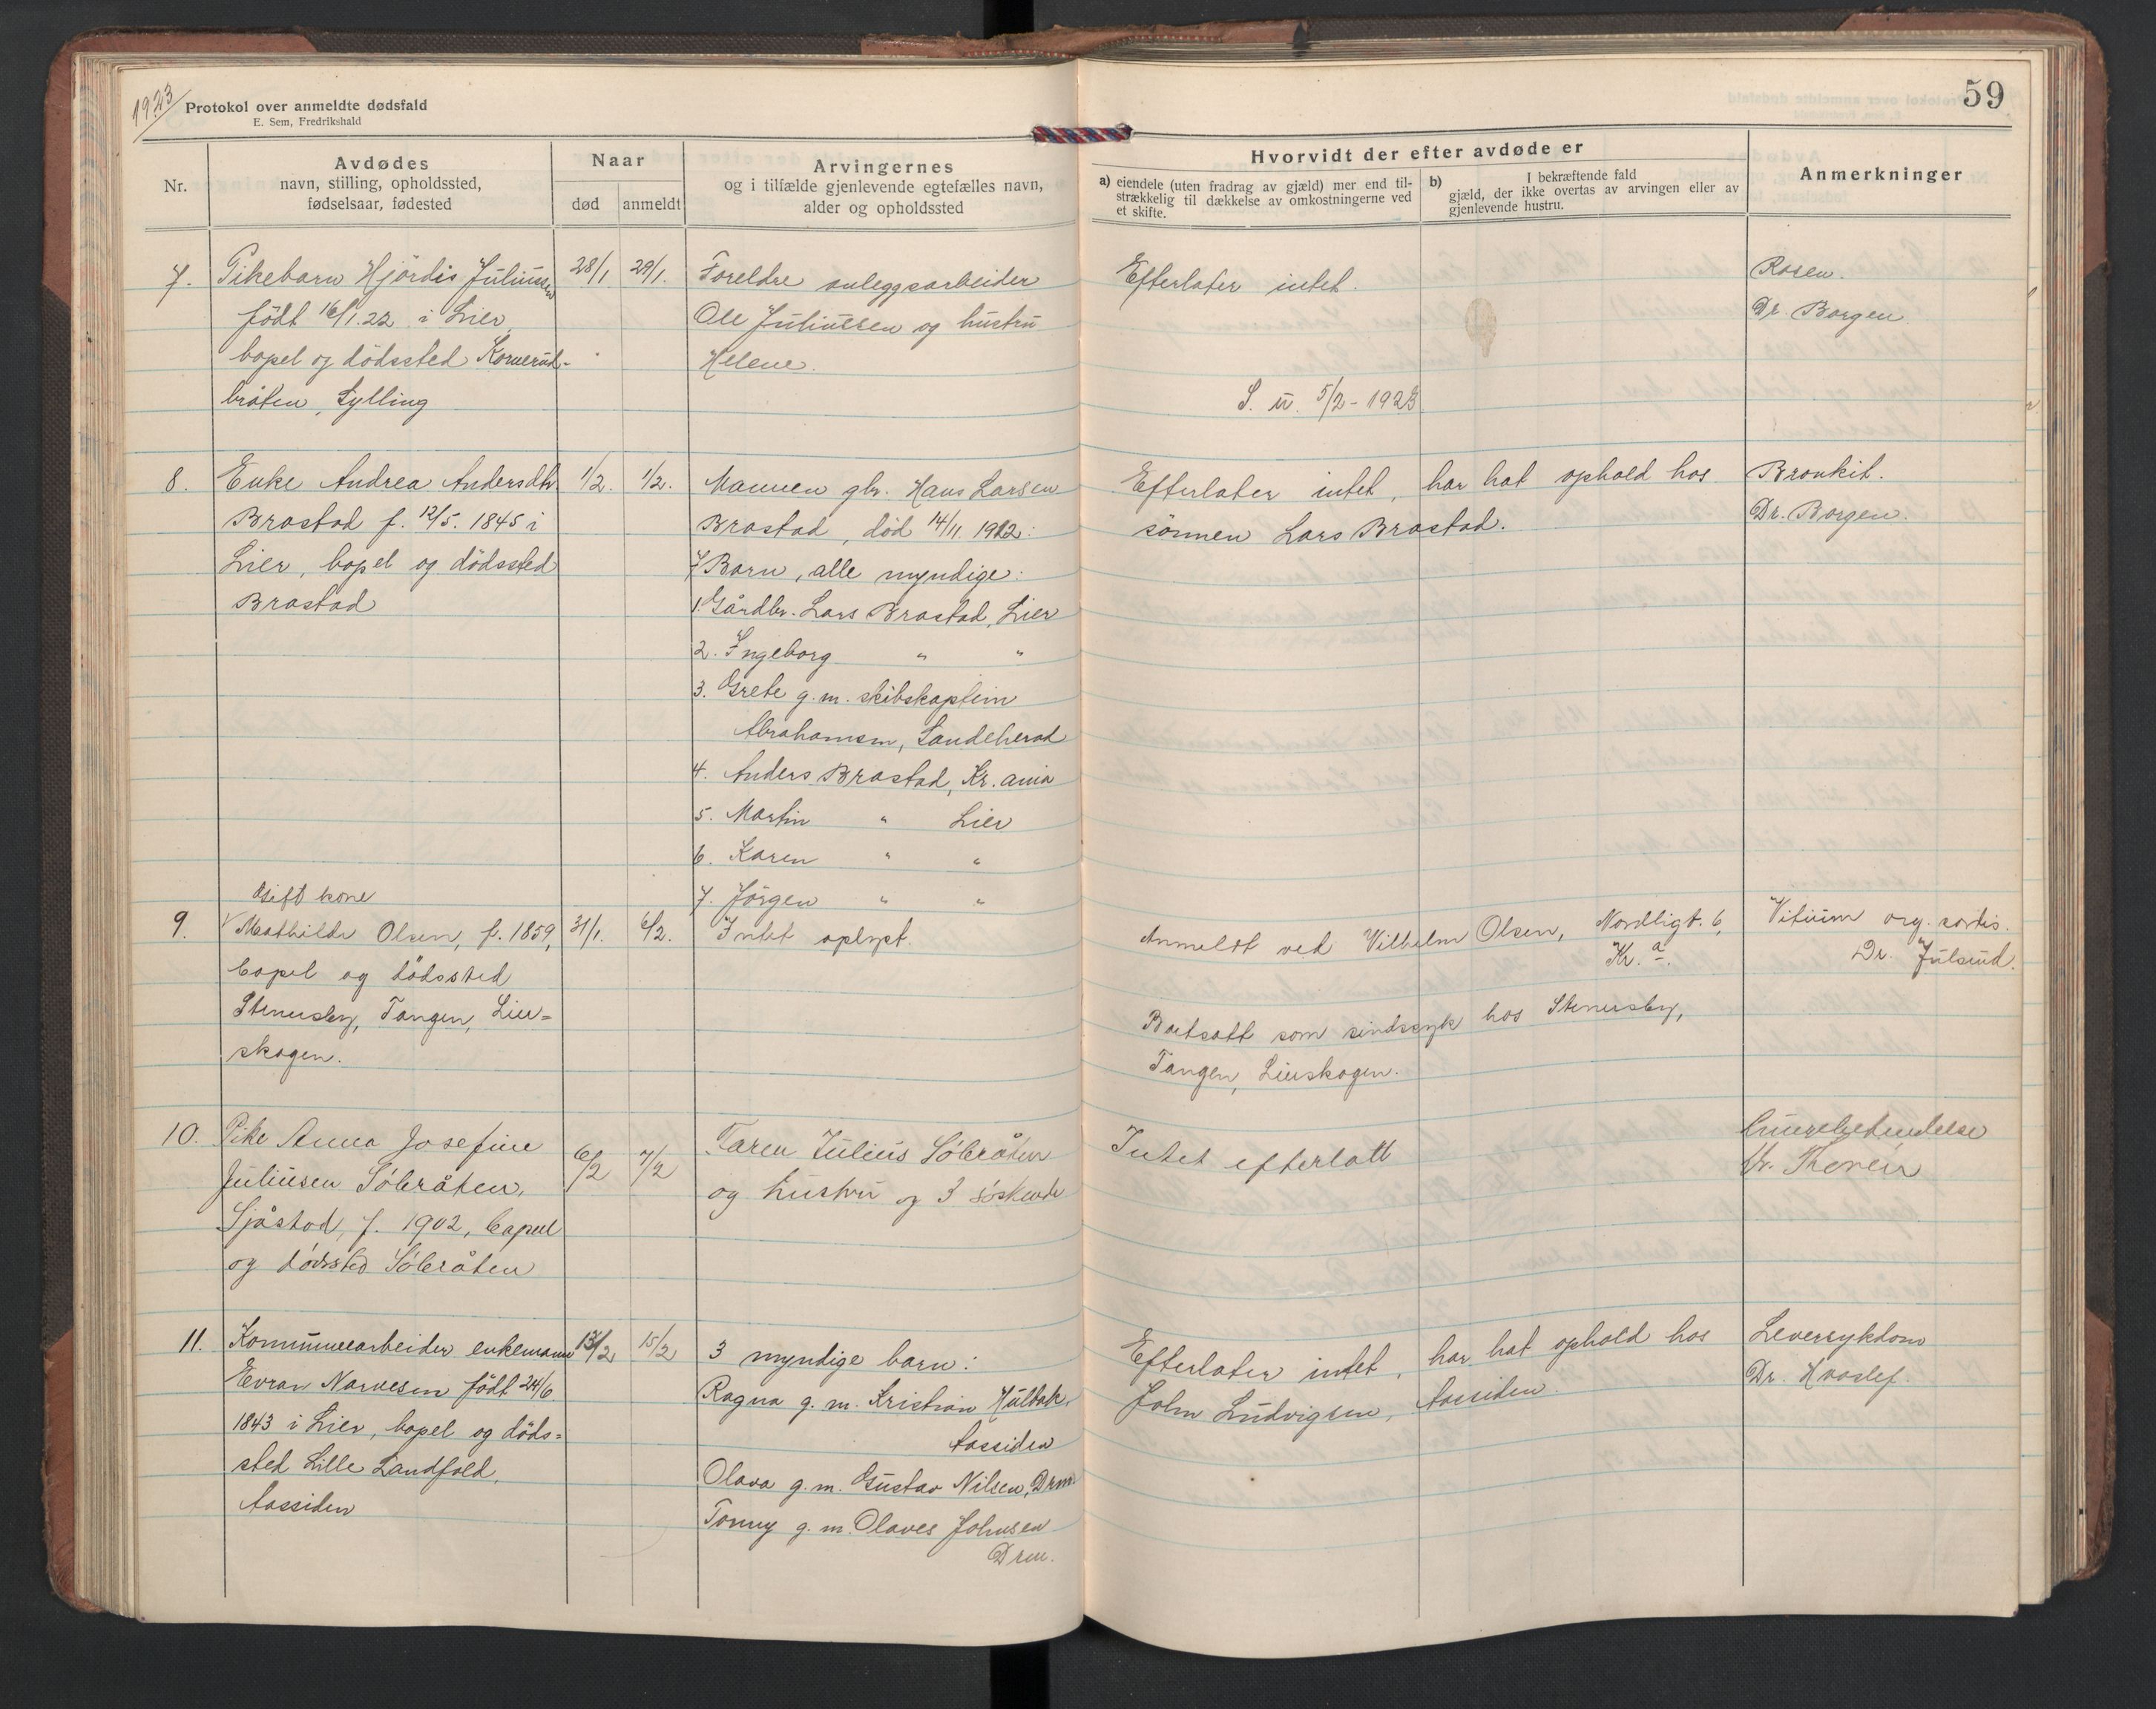 1923
Protokol over anmeldte dødsfald
E. Sem, Fredrikshald
59
Nr.
Avdødes
navn, stilling, opholdssted,
fødselsaar, fødested
Naar
død
anmeldt
Arvingernes
og i tilfælde gjenlevende egtefælles navn,
alder og opholdssted
Hvorvidt der efter avdøde er
a) eiendele (uten fradrag av gjæld) mer end til-
strækkelig til dækkelse av omkostningerne ved
et skifte.
b) I bekræftende fald
gjæld, der ikke overtas av arvingen eller av
gjenlevende hustru.
Anmerkninger
7.
Pikebarn Hjördis Juliussen
født 16/1.22 i Lier
bopel og dödssted Korverud-
bråten, Sylling
28/1
29/1.
Foreldre anleggsarbeider
Ole Juliussen og hustru
Helene.
Efterlater intet.
S. u. 5/2 - 1923
Rosen.
Dr. Borgen.
8.
Enke Andrea Andersdtr.
Brastad f. 12/5. 1845 i
Lier, bopel og dödssted
Brastad
1/2.
1/2.
Mannen gbr. Hans Larsen
Brastad, död 14/11. 1912:
7 Barn, alle myndige:
1. Gårdbr. Lars Brastad, Lier
2. Ingeborg " "
3. Grete g. m. skibskaptein
Abrahamsen, Sandeherad
4. Anders Brastad, Kr.ania
5. Martin " Lier
6. Karen " "
7. Jörgen " "
Efterlater intet, har hat ophold hos
sönnen Lars Brastad.
Bronkit.
Dr. Borgen.
9.
Gift kone
Mathilde Olsen, f. 1859,
bopel og dödssted
Stenersby, Tangen, Lier=
skogen.
31/1.
6/2.
Intet oplyst.
Anmeldt ved Vilhelm Olsen, Nordligt. 6,
Kr.a.
Bortsatt som sindssyk hos Stenersby,
Tangen, Lierskogen.
Vitium org. cordis.
Dr. Julsrud.
10.
Pike Anna Josefine
Juliusen Söbråten,
Sjåstad, f. 1902, bopel
og dödssted Söbråten
6/2
7/2
Faren Julius Söbråten
og hustru og 3 söskende
Intet efterlatt
Lungebetendelse
Dr.
11.
Kommunearbeider enkemann
Evran Narvesen födt 24/6
1843 i Lier, bopel og döds=
sted Lille Landfald,
Aassiden
13/2
15/2
3 myndige barn:
Ragna g. m. Kristian Hultbak,
Aassiden
Olava g. m. Gustav Nilsen, Drm.
Tonny g. m. Olaves Johnsen
Drm.
Efterlater intet, har hat ophold hos
John Ludvigsen, Aassiden.
Leversykdom
Dr. Hvoslef.